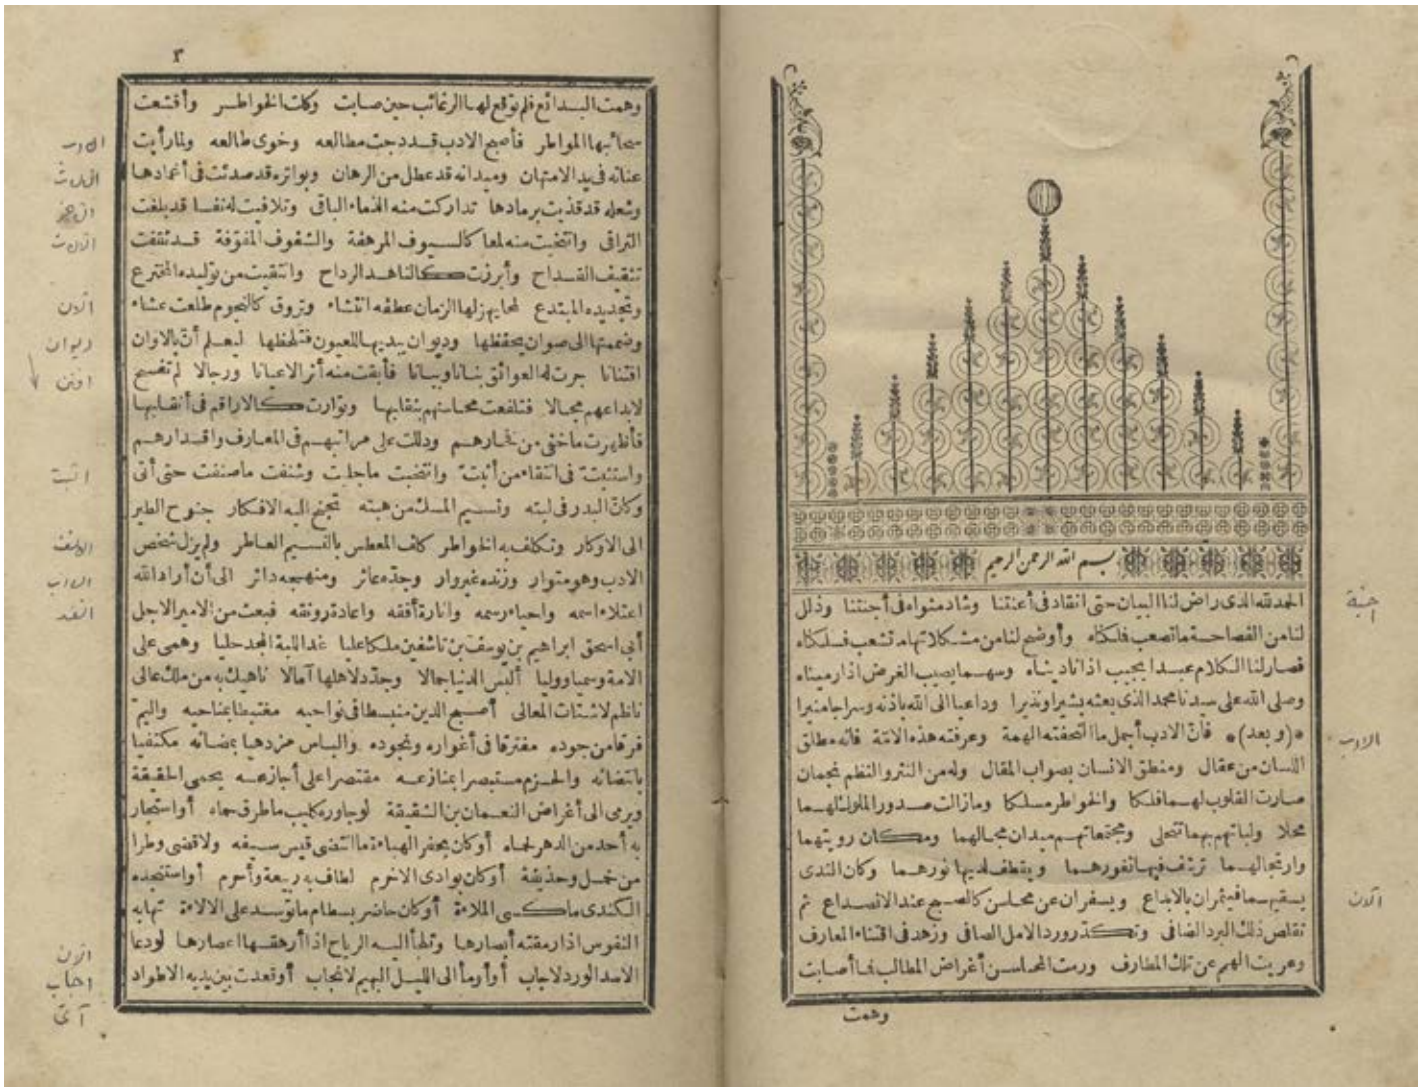 بسم الله الرحمن الرحيم
الحمد لله الذى راض لنا البيان حتى انقاد فى أعنتنا وشاد مثواه فى أجنتنا وذلل
لنا من الفصاحة ما تصعب فلكناه وأوضح لنا من مشكلاتها ما تشعب فسلكناه
فصار لنا الكلام عبدا يجيب اذا ناديناه وسهما يصيب الغرض اذا رميناه
وصلى الله على سيدنا محمد الذى بعثه بشيرا ونذيرا وداعيا الى الله باذنه وسراجا منيرا
*(وبعد)* فان الادب أجمل ما التحفته الهمة وعرفته هذه الامة فانه مطلق
اللسان من عقال ومنطق الانسان بصواب المقال وله من النثر والنظم نجمان
صارت القلوب لهما فلكا والخواطر مسلكا وما زالت صدور الملوك لهما
محلا ولباتهم بهما تتحلى ومجتمعاتهم ميدان مجالهما ومكان رويتهما
وارتجالهما ترتشف فيها ثغورهما ويقتطف لديها نورهما وكان الندى
يسقيهما فيثمران بالابداع ويسفران عن محاسن كالصبح عند الانصداع ثم
تقلص ذلك البرد الضافى وتكدر ورد الامل الصافى وزهد فى اقتناء المعارف
وعريت الهمم عن تلك المطارف ورمت المحاسن أغراض المطالب فما أصابت
وهمت
جنة
الادب
الان
٣
وهمت البدائع فلم توقع لها الرغائب حين صابت وكلت الخواطر وأقشعت
سحائبها المواطر فأصبح الادب قد دجت مطالعه وخوى طالعه ولما رأيت
عنانه فى يد الامتهان وميدانه قد عطل من الرهان وبواتره قد صدئت فى أغمادها
وشعله قد قذيت برمادها تداركت منه الذماء الباقى وتلافيت له نفسا قد بلغت
التراقى وانتخبت منه لمعا كالسيوف المرهفة والشفوف المفوفة قد ثقفت
تثقيف القداح وأبرزت كالناهد الرداح وانتقيت من توليده المخترع
وتجديده المبتدع لمحا يهز لها الزمان عطفه انتشاء وتروق كالنجوم طلعت عشاء
وضممتها الى صوان يحفظها وديوان يبديها للعيون فتلحظها ليعلم أن بالاوان
افتنانا جرت له العوائق بنانا وبيانا فأبقت منه أثر الاعيانا ورجالا لم تفسح
لابداعهم مجالا فتلفعت محاسنهم بنقابها وتوارت كالاراقم فى أنقابها
فأظهرت ما خفى من فخارهم ودللت على مراتبهم فى المعارف واقدارهم
واستثبت فى انتقاء من أثبت وانتخبت ما جلبت وشنفت ما صنفت حتى أتى
وكان البدر فى لبته ونسيم المسك من هبته تجنح اليه الافكار جنوح الطير
الى الاوكار وتكلف به الخواطر كلف المعطس بالنسيم العاطر ولم يزل شخص
الادب وهو متوار وزنده غير وار وجده عاثر ومنهجه داثر الى أن أراد الله
اعتلاء اسمه واحياء رسمه وانارة أفقه واعادة رونقه فبعث من الامير الاجل
أبى اسحق ابراهيم بن يوسف بن تاشفين ملكا عليا غدا للبة المجد حليا وهمى على
الامة وسميا ووليا ألبس الدنيا جمالا وجدد لاهلها آمالا ناهيك به من ملك عالى
ناظم لاشتات المعالى أصبح الدين منبسطا فى نواحيه مغتبطا بمناحيه واليم
فرقا من جوده مفترقا فى أغواره ونجوده والباس مزدهيا بمضائه مكتفيا
بانتضائه والحزم مستبصرا بمنازعه مقتصرا على أجازعه يحمى الحقيقة
ويرمى الى أغراض النعمان بن الشقيقة لو جاوره كليب ما طرق حماه أو استجار
به أحد من الدهر لحماه أو كان بجفر الهباءة ما انتضى قيس سيفه ولا قضى وطرا
من حمل وحذيفة أو كان بوادى الاخرم لطاف به ربيعة وأحرم أو استنجده
الكندى ما كسى الملاءة أو كان حاضر بسطام ما توسد على الالاءة تهابه
النفوس اذا رمقته أبصارها وتلجأ اليه الرياح اذا أرهقها اعصارها لو دعا
الاسد الورد لاجاب أو أومأ الى الليل البهيم لانجاب أو قعدت بين يديه الاطواد
الادب
الان
ديوان
افتن
اثبت
الادب
الان
اجاب